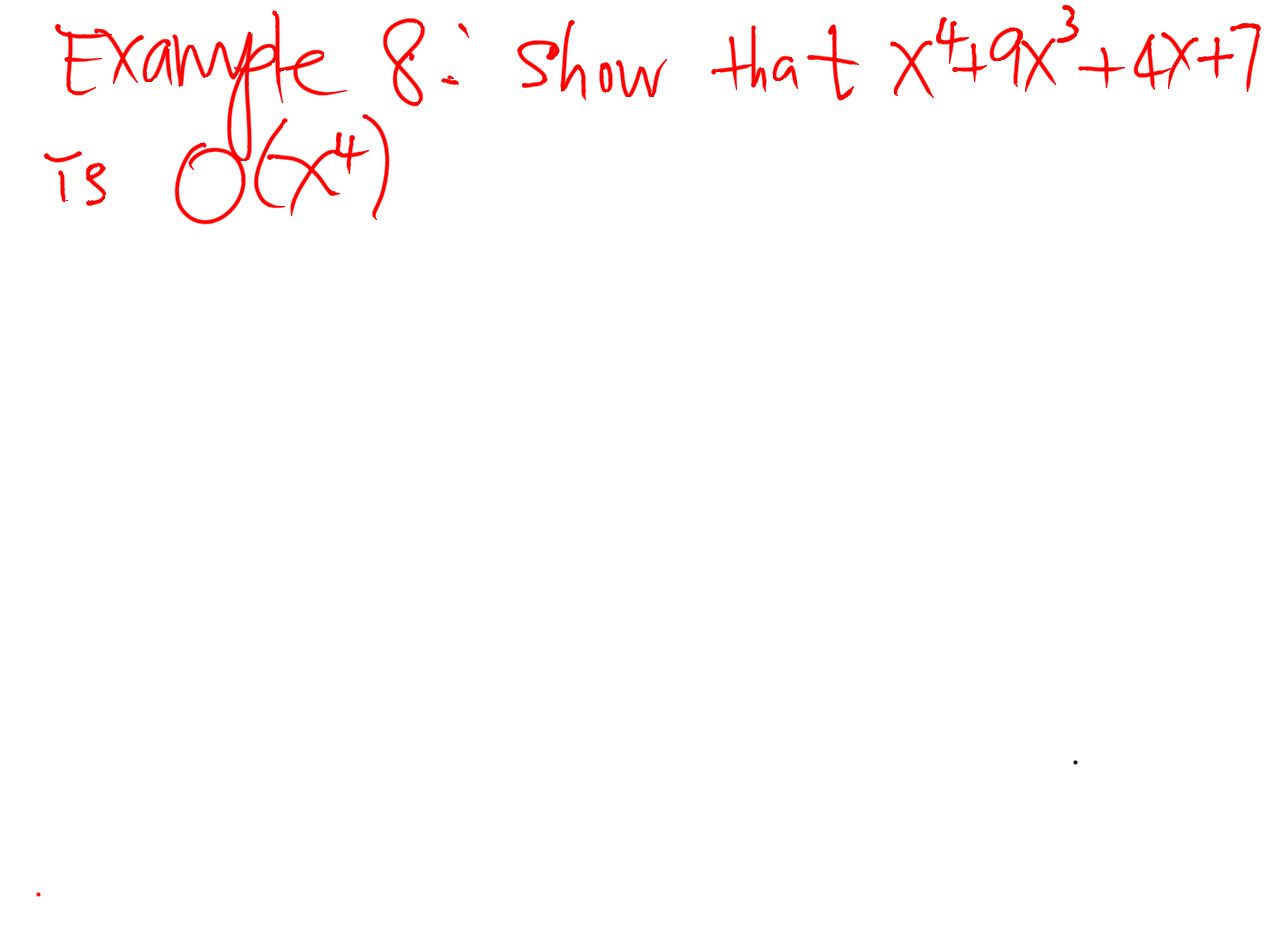 Example 8: Show that x⁴+9x³+4x+7
is O(x⁴)